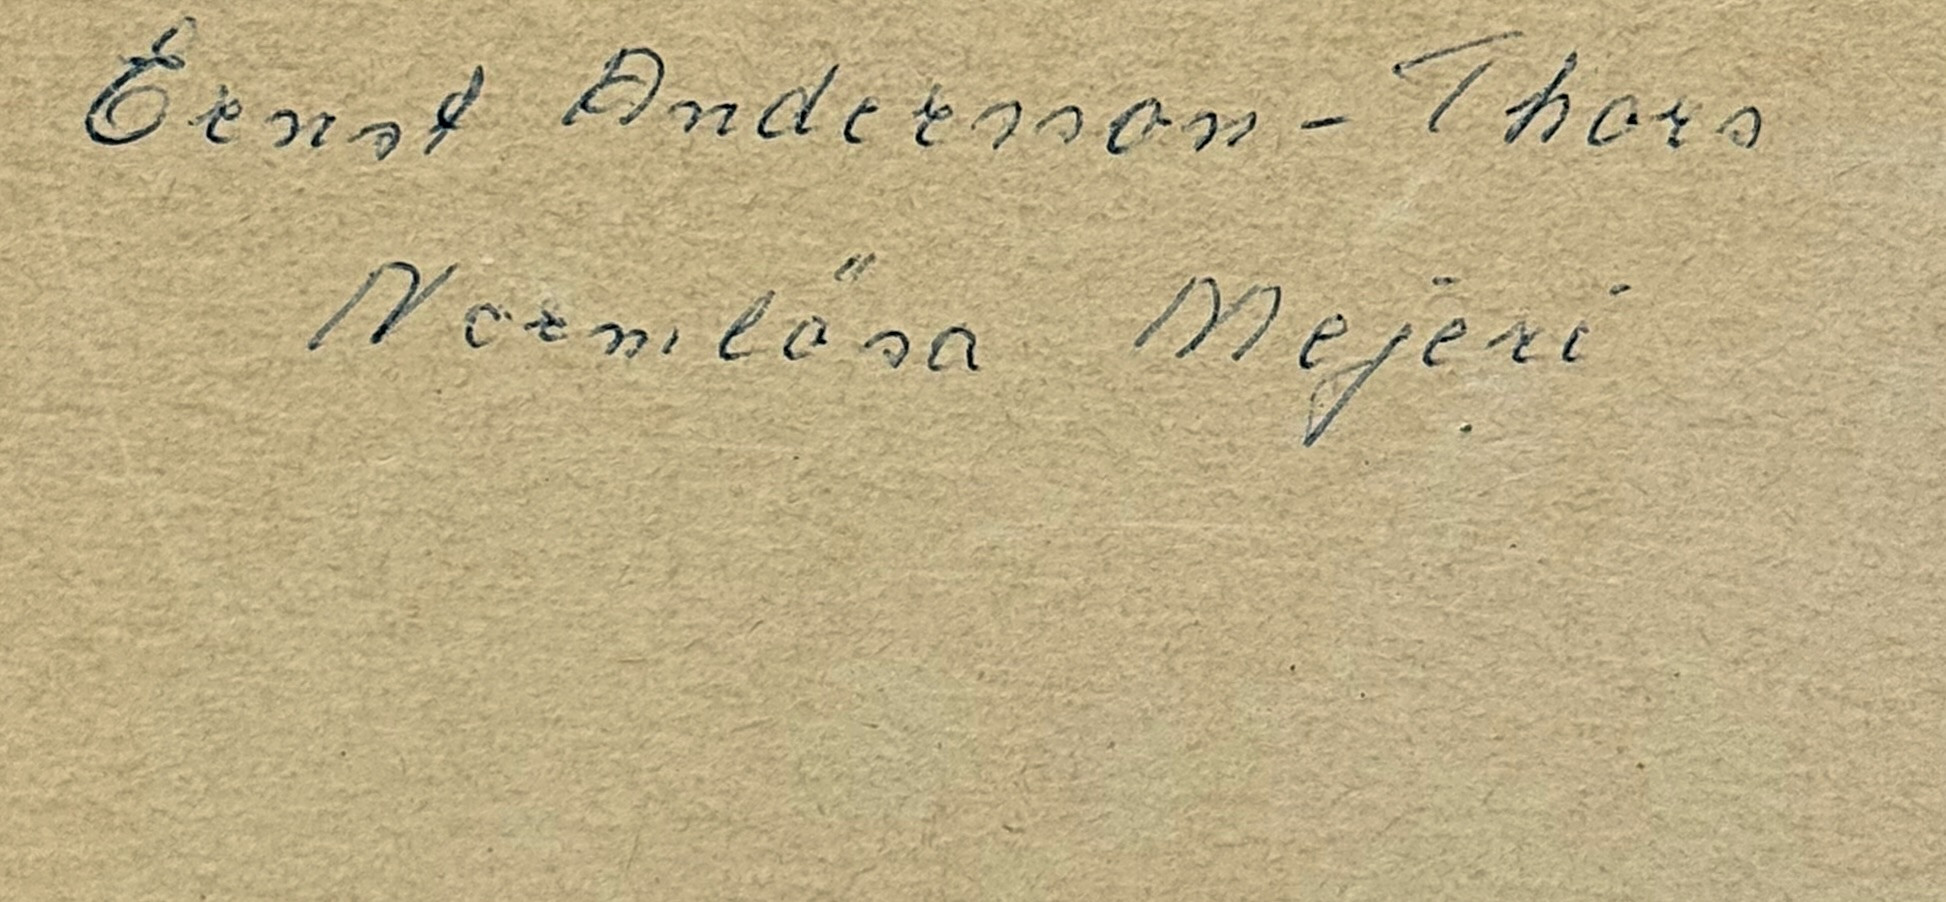 Ernst Andersson - Thors
Normlösa Mejeri